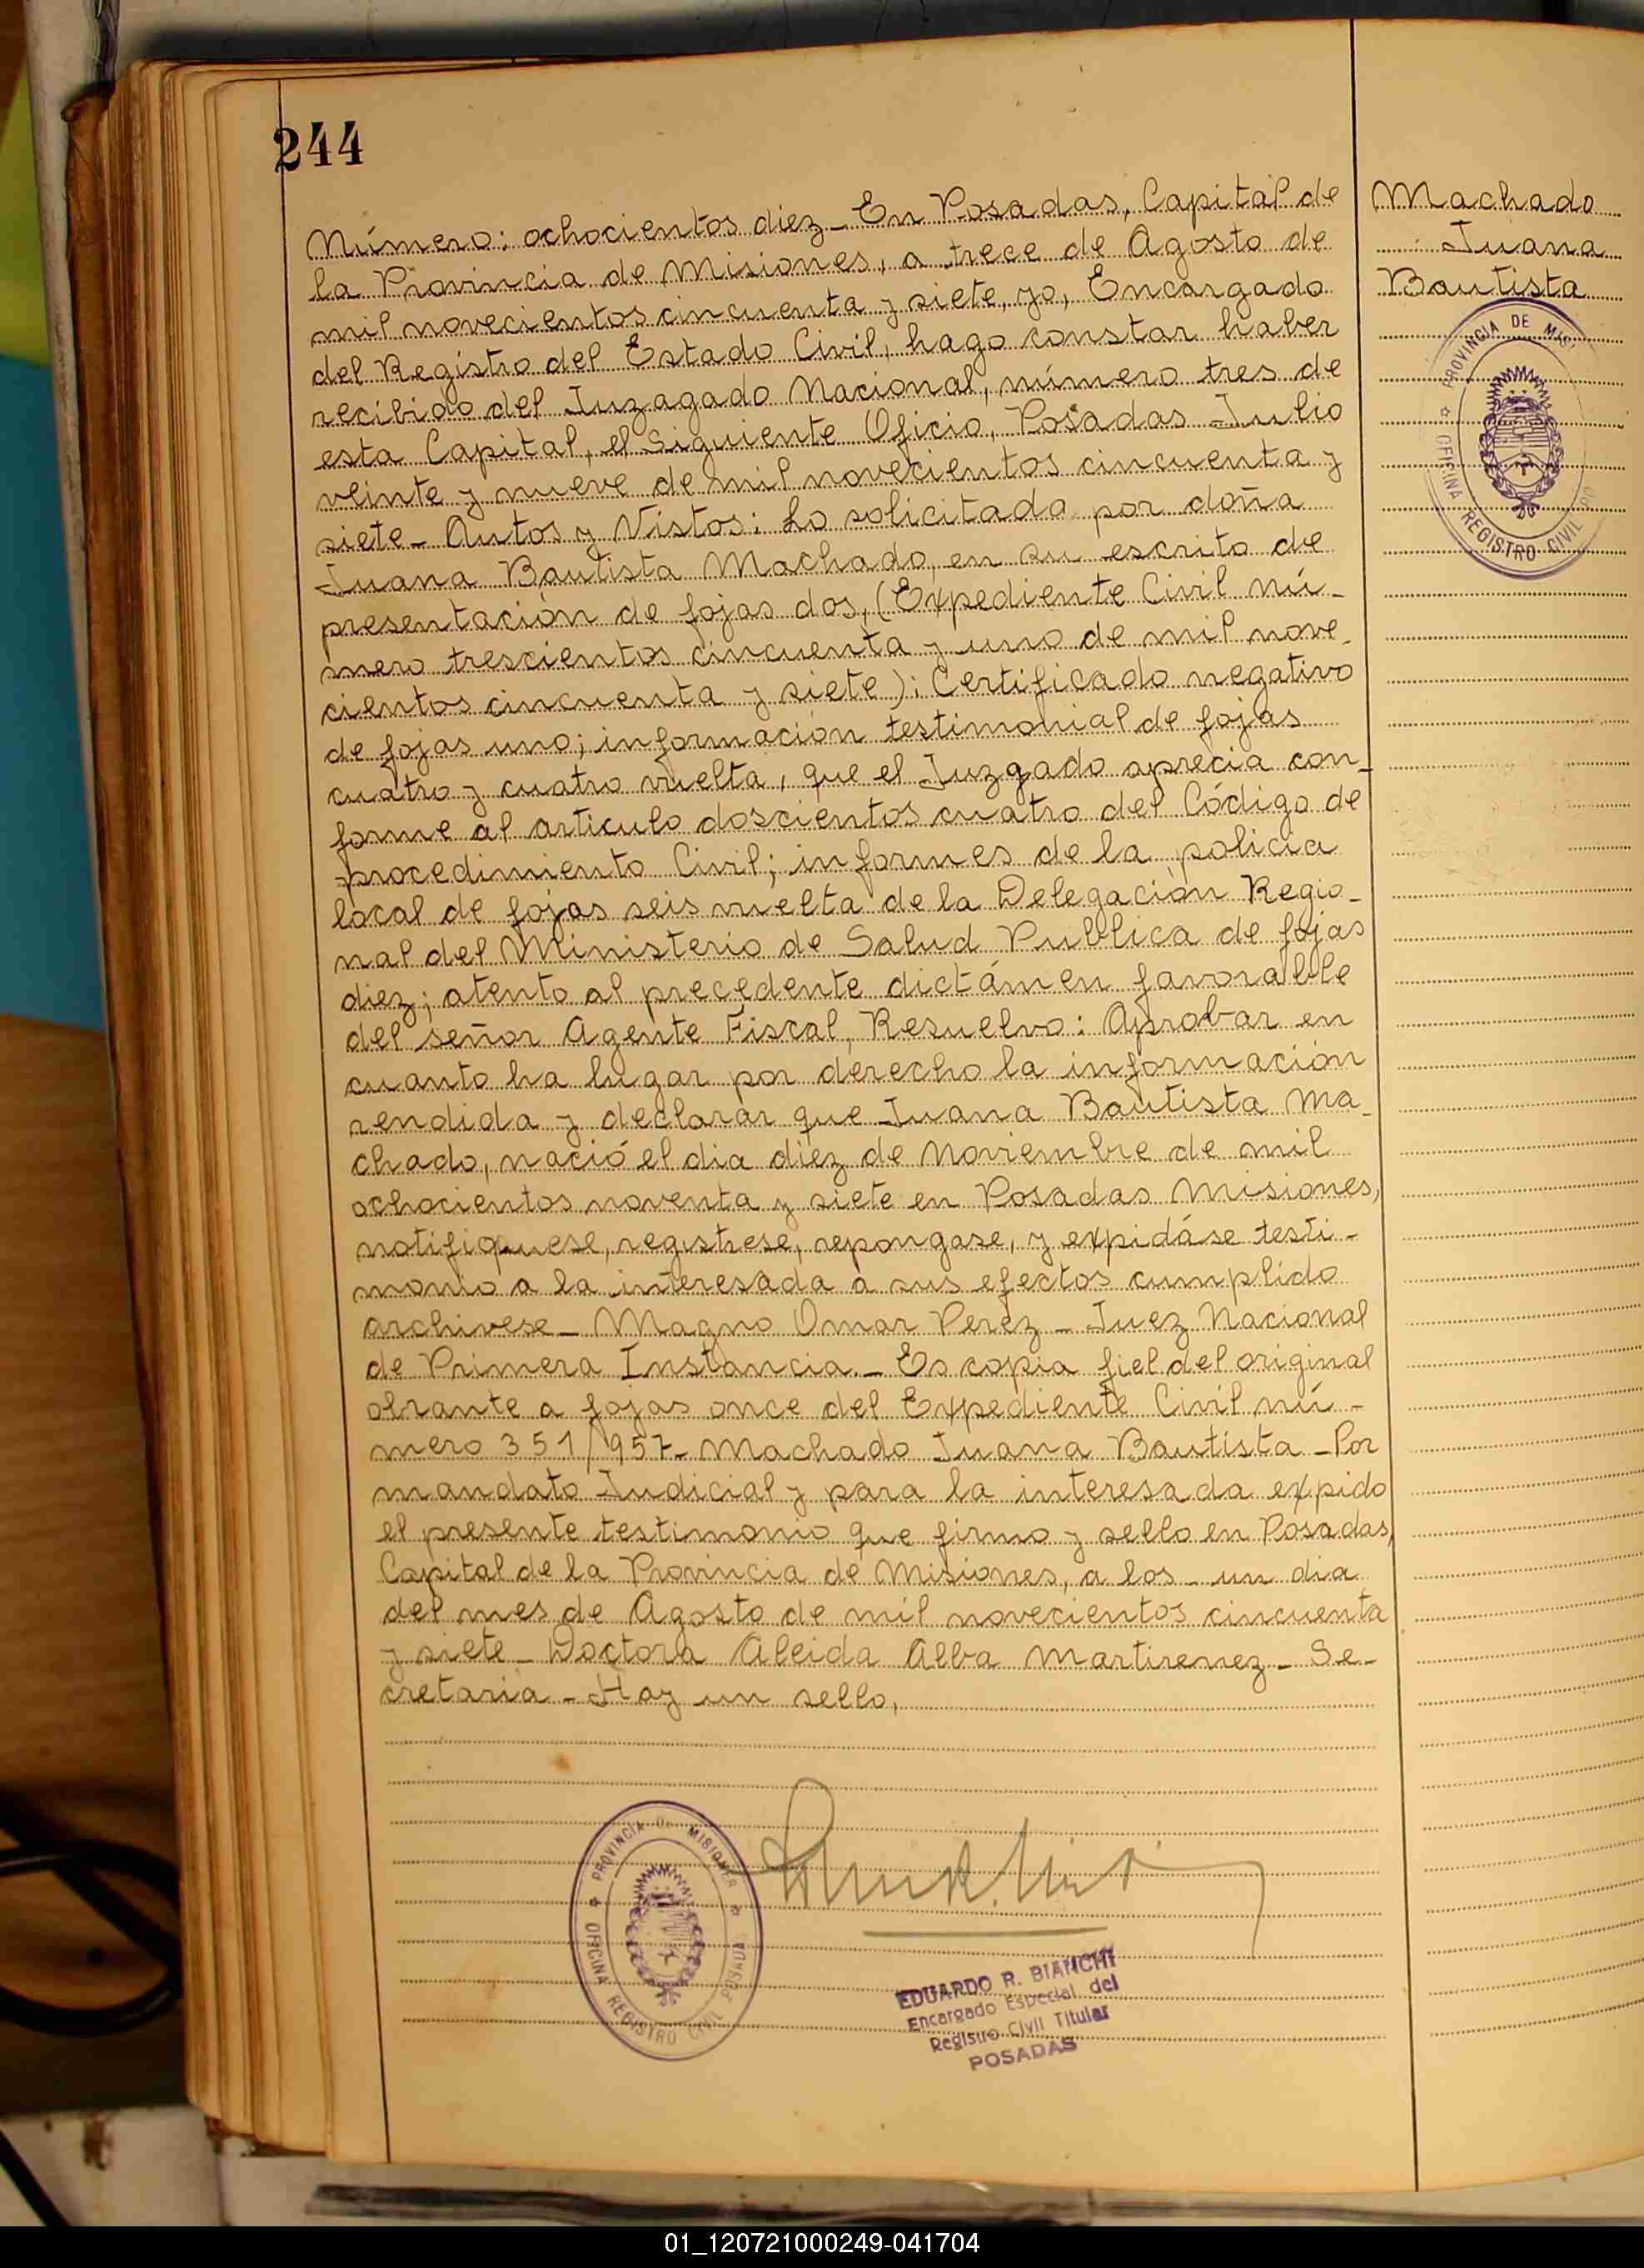 244
Número: ochocientos diez_ En Posadas, Capital de
la Provincia de Misiones, a trece de Agosto de
mil novecientos cincuenta y siete, yo, Encargado
del Registro del Estado Civil, hago constar haber
recibido del Juzagado Nacional, número tres de
esta Capital, el siguiente Oficio, Posadas Julio
veinte y nueve de mil novecientos cincuenta y
siete_ Autos y Vistos: Lo solicitado por doña
Juana Bautista Machado, en su escrito de
presentación de fojas dos, (Expediente Civil nú_
mero trescientos cincuenta y uno de mil nove_
cientos cincuenta y siete); Certificado negativo
de fojas uno; información testimonial de fojas
cuatro y cuatro vuelta, que el Juzgado aprecia con_
forme al articulo doscientos cuatro del Código de
procedimiento Civil; informes de la policia
local de fojas seis vuelta de la Delegación Regio_
nal del Ministerio de Salud Publica de fojas
diez; atento al precedente dictámen favorable
del señor Agente Fiscal, Resuelvo: Aprobar en
cuanto ha lugar por derecho la información
rendida y declarar que Juana Bautista Ma_
chado, nació el dia diez de Noviembre de mil
ochocientos noventa y siete en Posadas Misiones,
notifiquese, registrese, repongase, y expidáse testi_
monio a la interesada a sus efectos cumplido
archivese_ Magno Omar Perez_ Juez Nacional
de Primera Instancia._ Es copia fiel del original
obrante a fojas once del Expediente Civil nú_
mero 351/957_ Machado Juana Bautista_ Por
mandato Judicial y para la interesada expido
el presente testimonio que firmo y sello en Posadas,
Capital de la Provincia de Misiones, a los_ un dia
del mes de Agosto de mil novecientos cincuenta
y siete_ Doctora Aleida Alba Martirenez_ Se_
cretaria_ Hay un sello,
Machado
Juana
Bautista
PROVINCIA DE MIS
OFICINA REGISTRO CIVIL
PROVINCIA DE MISIONES
OFICINA REGISTRO CIVIL POSADAS
EDUARDO R. BIANCHI
Encargado Especial del
Registro Civil Titular
POSADAS
01_120721000249-041704